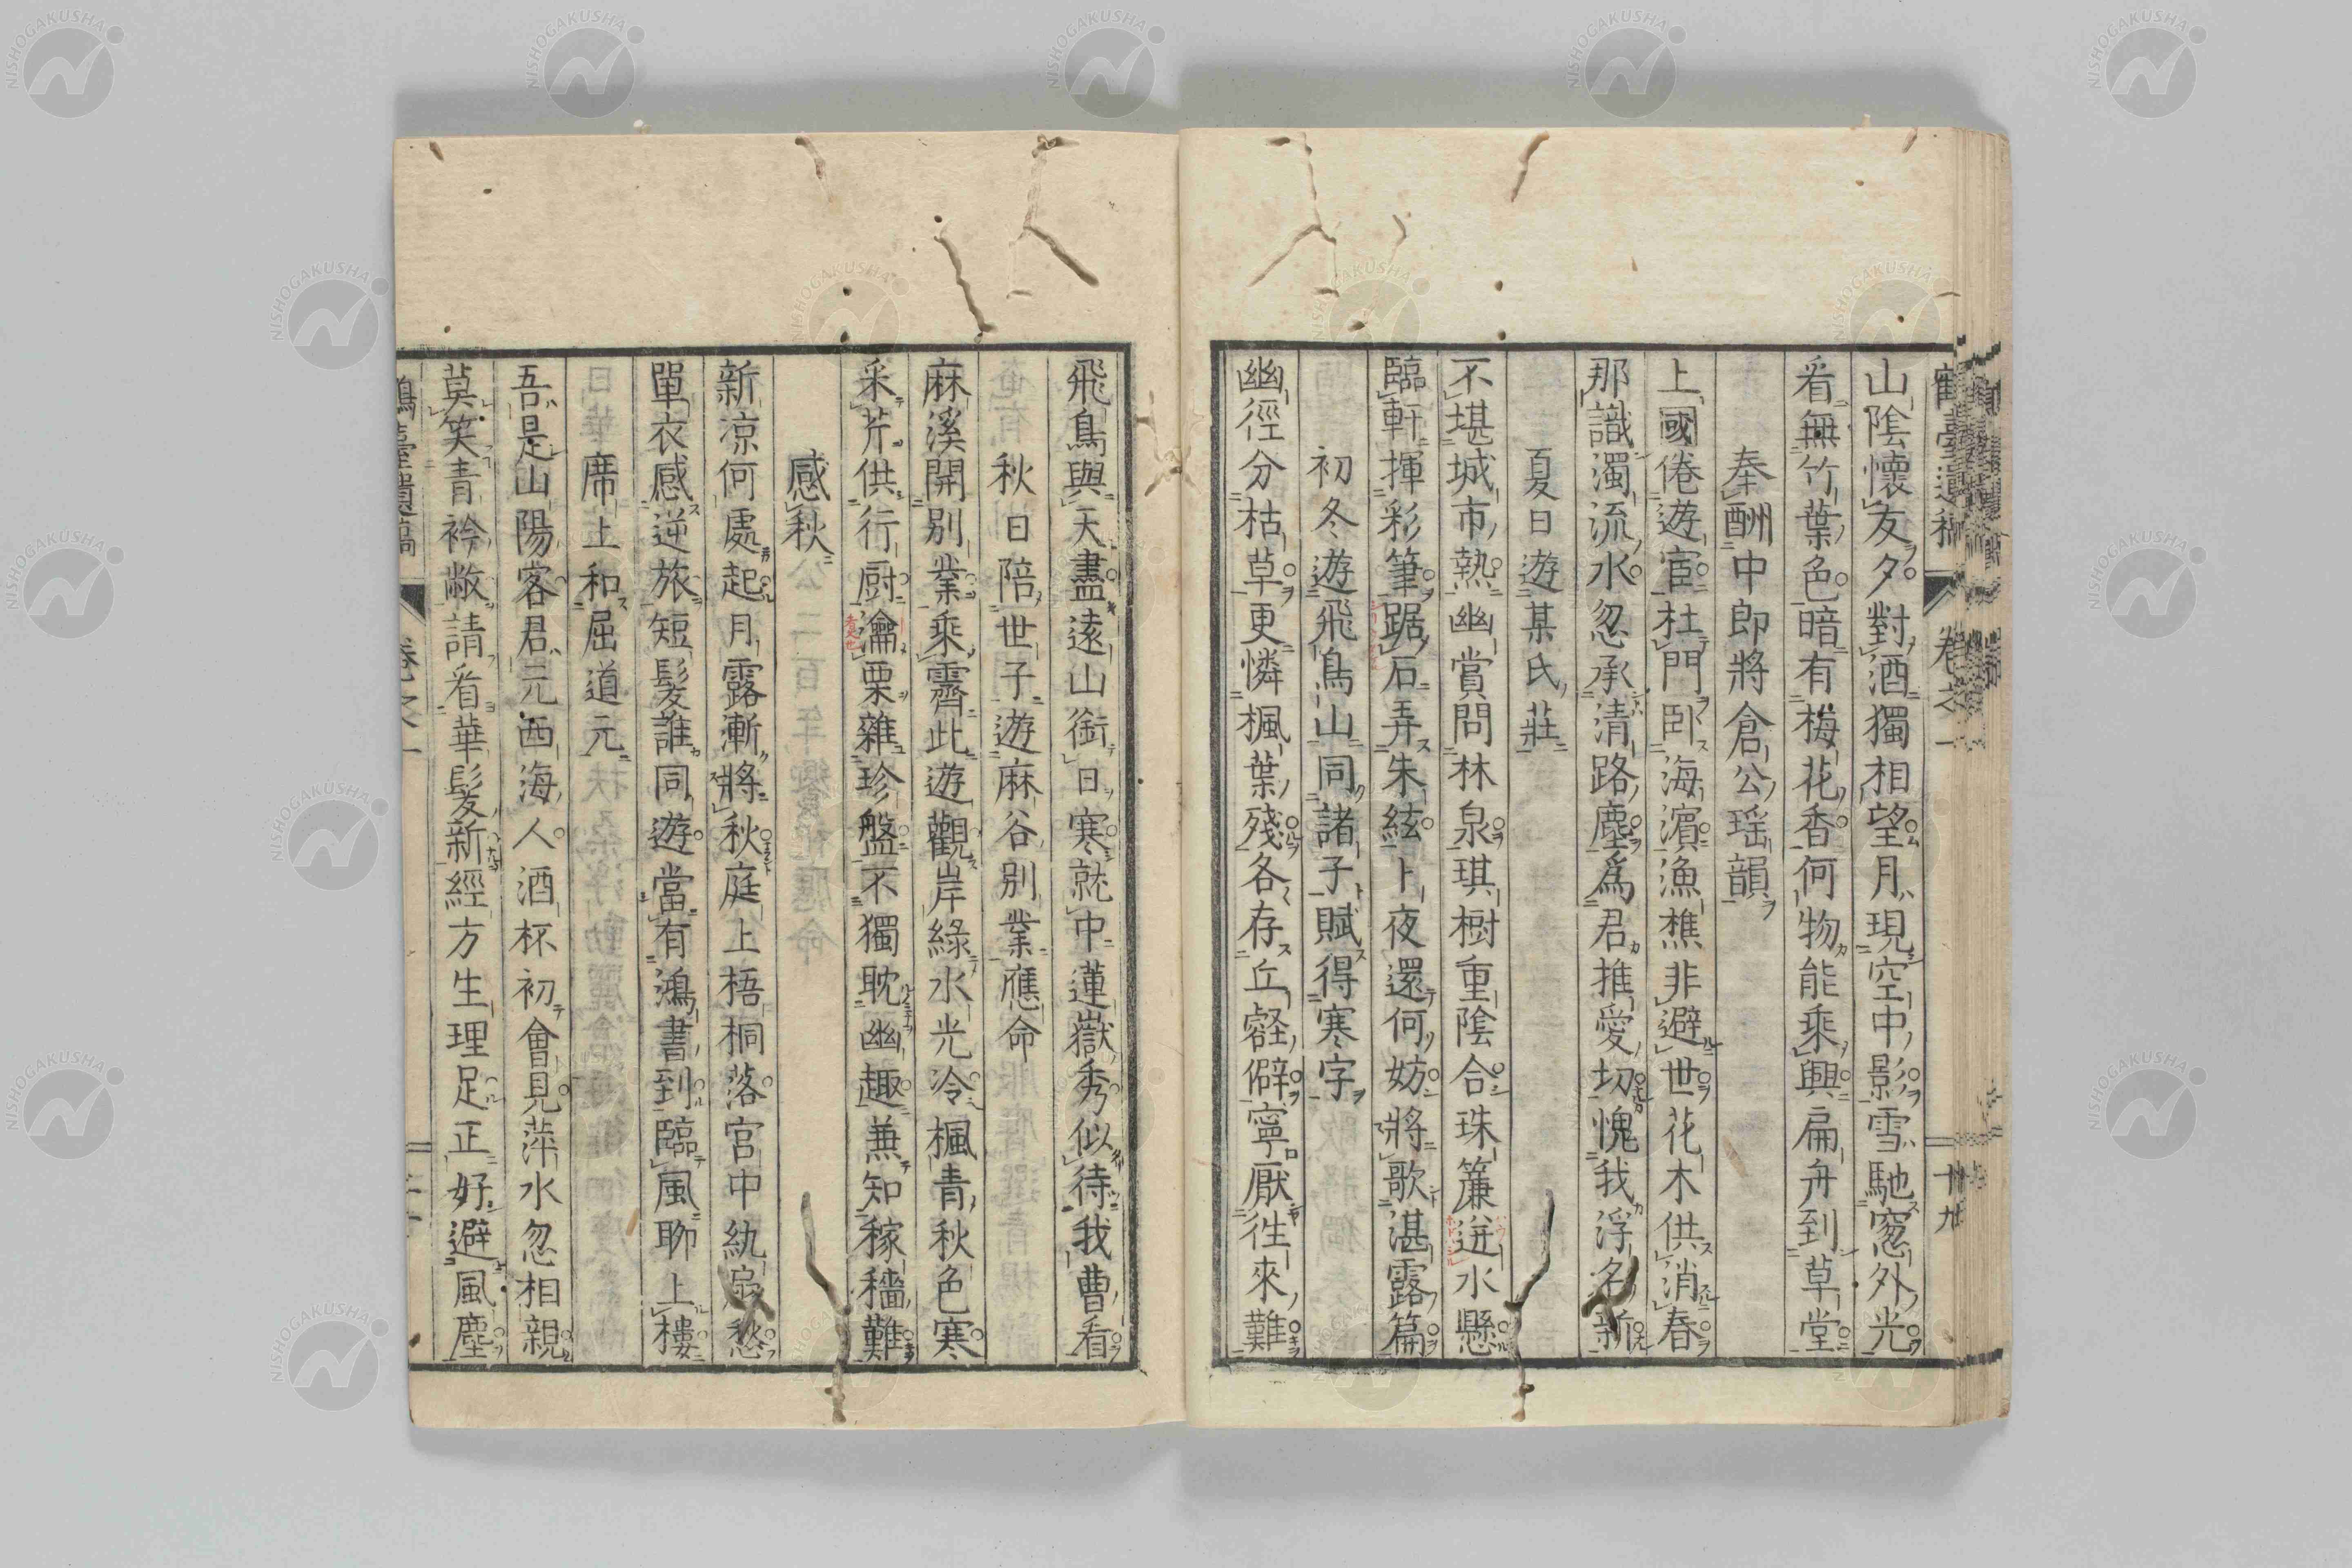 鶴臺遺稿 卷之一 二十九
山陰懷友夕對酒獨相望月現空中影雪馳窓外光
看無竹葉色暗有梅花香何物能乘興扁舟到草堂
奉酬中郎將倉公瑤韻
上國倦遊宦杜門臥海濱漁樵非避世花木供消春
那識濁流水忽承清路塵爲君推愛切愧我浮名新
夏日遊某氏莊
不堪城市熱幽賞問林泉琪樹重陰合珠簾迸水懸
臨軒揮彩筆踞石弄朱絃卜夜還何妨將歌湛露篇
初冬遊飛鳥山同諸子賦得寒字
幽徑分枯草更憐楓葉殘各存丘壑僻寧厭徃來難
飛鳥與天盡遠山銜日寒就中蓮嶽秀似待我曹看
秋日陪世子遊麻谷別業應命
麻溪開別業乘霽此遊觀岸綠水光冷楓青秋色寒
采芹供行厨瀹栗雜珍盤不獨耽幽趣兼知稼穡難
感秋
新凉何處起月露漸將秋庭上梧桐落宮中紈扇愁
單衣感逆旅短髮誰同遊當有鴻書到臨風聊上樓
席上和屈道元
吾是山陽客君元西海人酒杯初會見萍水忽相親
莫笑青衿敝請看華髮新經方生理足正好避風塵
鶴臺遺稿 卷之一